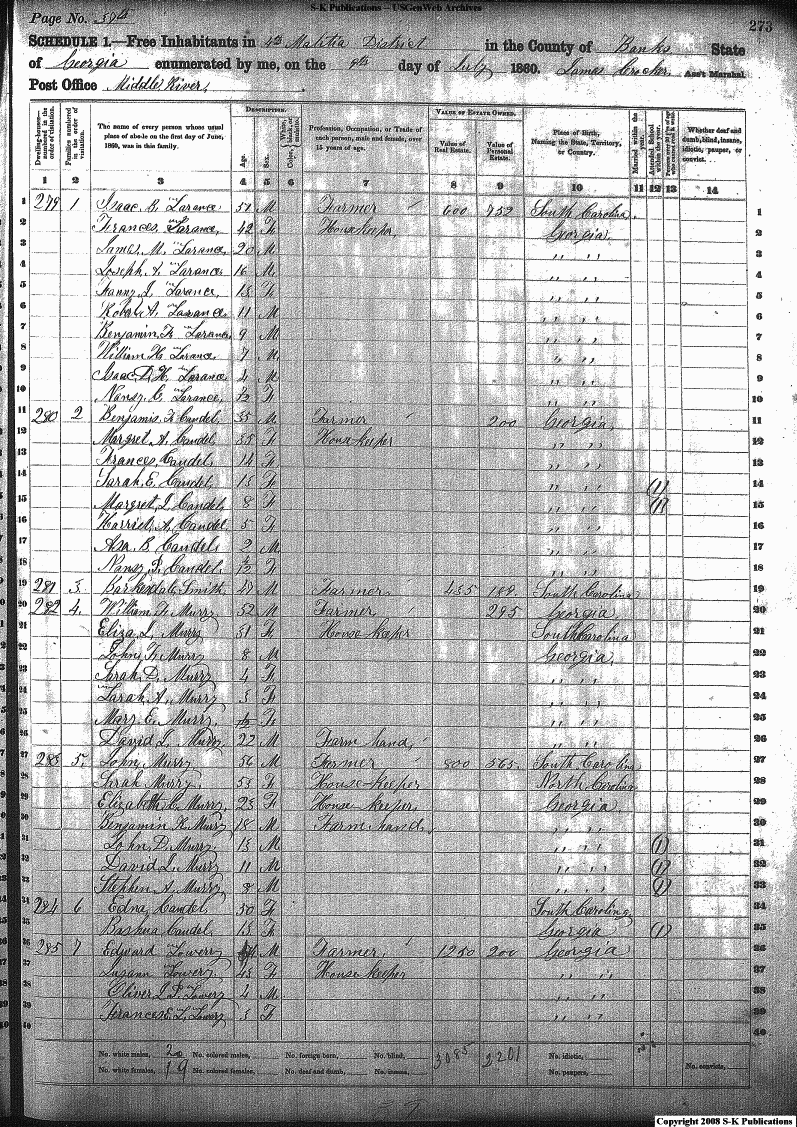 S-K Publications – USGenWeb Archives
Page No. 39th
273
SCHEDULE 1.—Free Inhabitants in 4th Malitia District in the County of Banks State
of Georgia enumerated by me, on the 9th day of July 1860. James Crocker Ass't Marshal
Post Office Middle River,
Dwelling-houses—numbered in the order of visitation.
Families numbered in the order of visitation.
The name of every person whose usual place of abode on the first day of June, 1860, was in this family.
DESCRIPTION.
Age.
Sex.
Color, White, black, or mulatto.
Profession, Occupation, or Trade of each person, male and female, over 15 years of age.
VALUE OF ESTATE OWNED.
Value of Real Estate.
Value of Personal Estate.
Place of Birth, Naming the State, Territory, or Country.
Married within the year.
Attended School within the year.
Whether deaf and dumb, blind, insane, idiotic, pauper, or convict.
1 2 3 4 5 6 7 8 9 10 11 12 13 14
1 279 1 Isaac Larance 51 M Farmer 600 752 South Carolina 1
2 Frances Larance 42 F Housekeeper Georgia 2
3 James M. Larance 20 M " " 3
4 Joseph A. Larance 16 M " " 4
5 Larance 13 F " " 5
6 Robert A. Larance 11 M " " 6
7 Benjamin F. Larance 9 M " " 7
8 William H. Larance 7 M " " 8
9 Isaac D. H. Larance 4 M " " 9
10 Nancy C. Larance F " " 10
11 280 2 Benjamin F. Caudel 35 M Farmer 200 Georgia 11
12 Margret A. Caudel 35 F House keeper " " 12
13 Frances Caudel 14 F " " 13
14 Sarah E. Caudel 13 F " " (1) 14
15 Margret J. Caudel 8 F " " (1) 15
16 Harriet A. Caudel 5 F " " 16
17 Asa B. Caudel 2 M " " 17
18 Nancy Caudel F " " 18
19 281 3 Barkesdale Smith 47 M Farmer 435 189 South Carolina 19
20 282 4 William Murry 52 M Farmer 295 Georgia 20
21 Eliza J. Murry 31 F House keeper South Carolina 21
22 John F. Murry 8 M Georgia 22
23 Sarah D. Murry 4 F " " 23
24 Sarah A. Murry 3 F " " 24
25 Mary E. Murry F " " 25
26 David L. Murry 22 M Farm hand " " 26
27 283 5 John Murry 56 M Farmer 800 565 South Carolina 27
28 Sarah Murry 53 F House-keeper North Carolina 28
29 Elizabeth C. Murry 23 F House-keeper Georgia 29
30 Benjamin R. Murry 18 M Farm hand " " 30
31 John D. Murry 13 M " " (1) 31
32 David J. Murry 11 M " " (1) 32
33 Stephen A. Murry 8 M " " (1) 33
34 284 6 Edna Caudel 50 F South Carolina 34
35 Bashua Caudel 13 F Georgia (1) 35
36 285 7 Edward Lowery M Farmer 1250 200 Georgia 36
37 Susann Lowery 43 F House keeper " " 37
38 Oliver J. P. Lowery 4 M " " 38
39 Frances E. L. Lowery 3 F " " 39
40 40
No. white males, 20 No. colored males, No. foreign born, No. blind, 3085 2201 No. idiotic,
No. white females, 19 No. colored females, No. deaf and dumb, No. insane, No. paupers, No. convicts,
Copyright 2008 S-K Publications